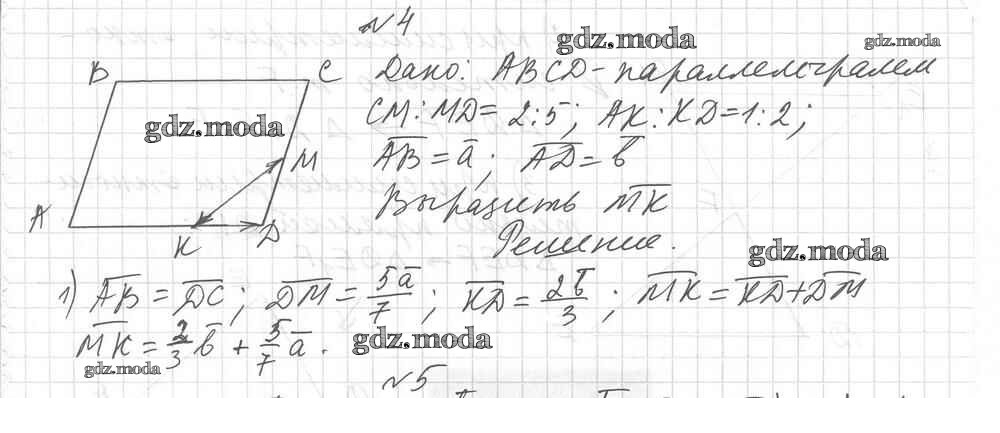 №4
gdz.moda
gdz.moda
B
C
Дано: ABCD - параллелограмм
gdz.moda
CM : MD = 2 : 5 ; AK : KD = 1 : 2 ;
M
A̅B̅ = a̅ ; A̅D̅ = b̅
Выразить M̅K̅
A
K
D
Решение.
gdz.moda
1) A̅B̅ = D̅C̅ ; D̅M̅ = 5a̅/7 ; K̅D̅ = 2b̅/3 ; M̅K̅ = K̅D̅ + D̅M̅
M̅K̅ = 2/3 b̅ + 5/7 a̅ .
gdz.moda
gdz.moda
№5